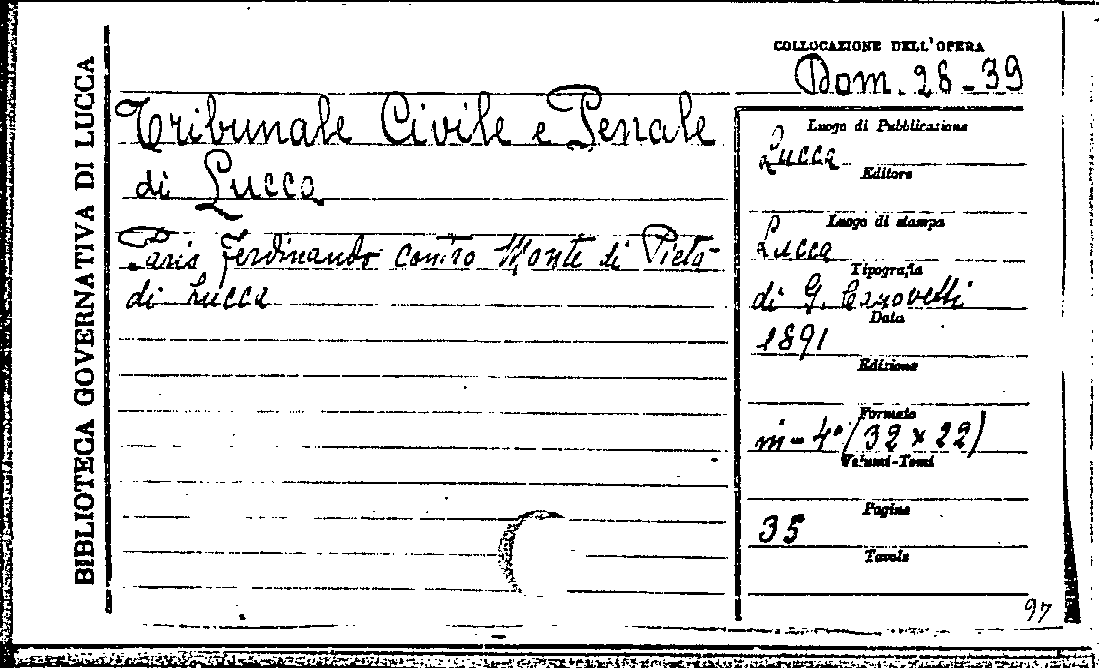 BIBLIOTECA GOVERNATIVA DI LUCCA
COLLOCAZIONE DELL'OPERA
Dom. 28-39
Tribunale Civile e Penale
di Lucca
Paris Ferdinando contro Monte di Pietà
di Lucca
Luogo di Pubblicazione
Lucca
Editore
Luogo di stampa
Lucca
Tipografia
di G.
Data
1891
Edizione
Formato
in-4° (32 x 22)
Volumi-Tomi
Pagine
35
Tavole
97